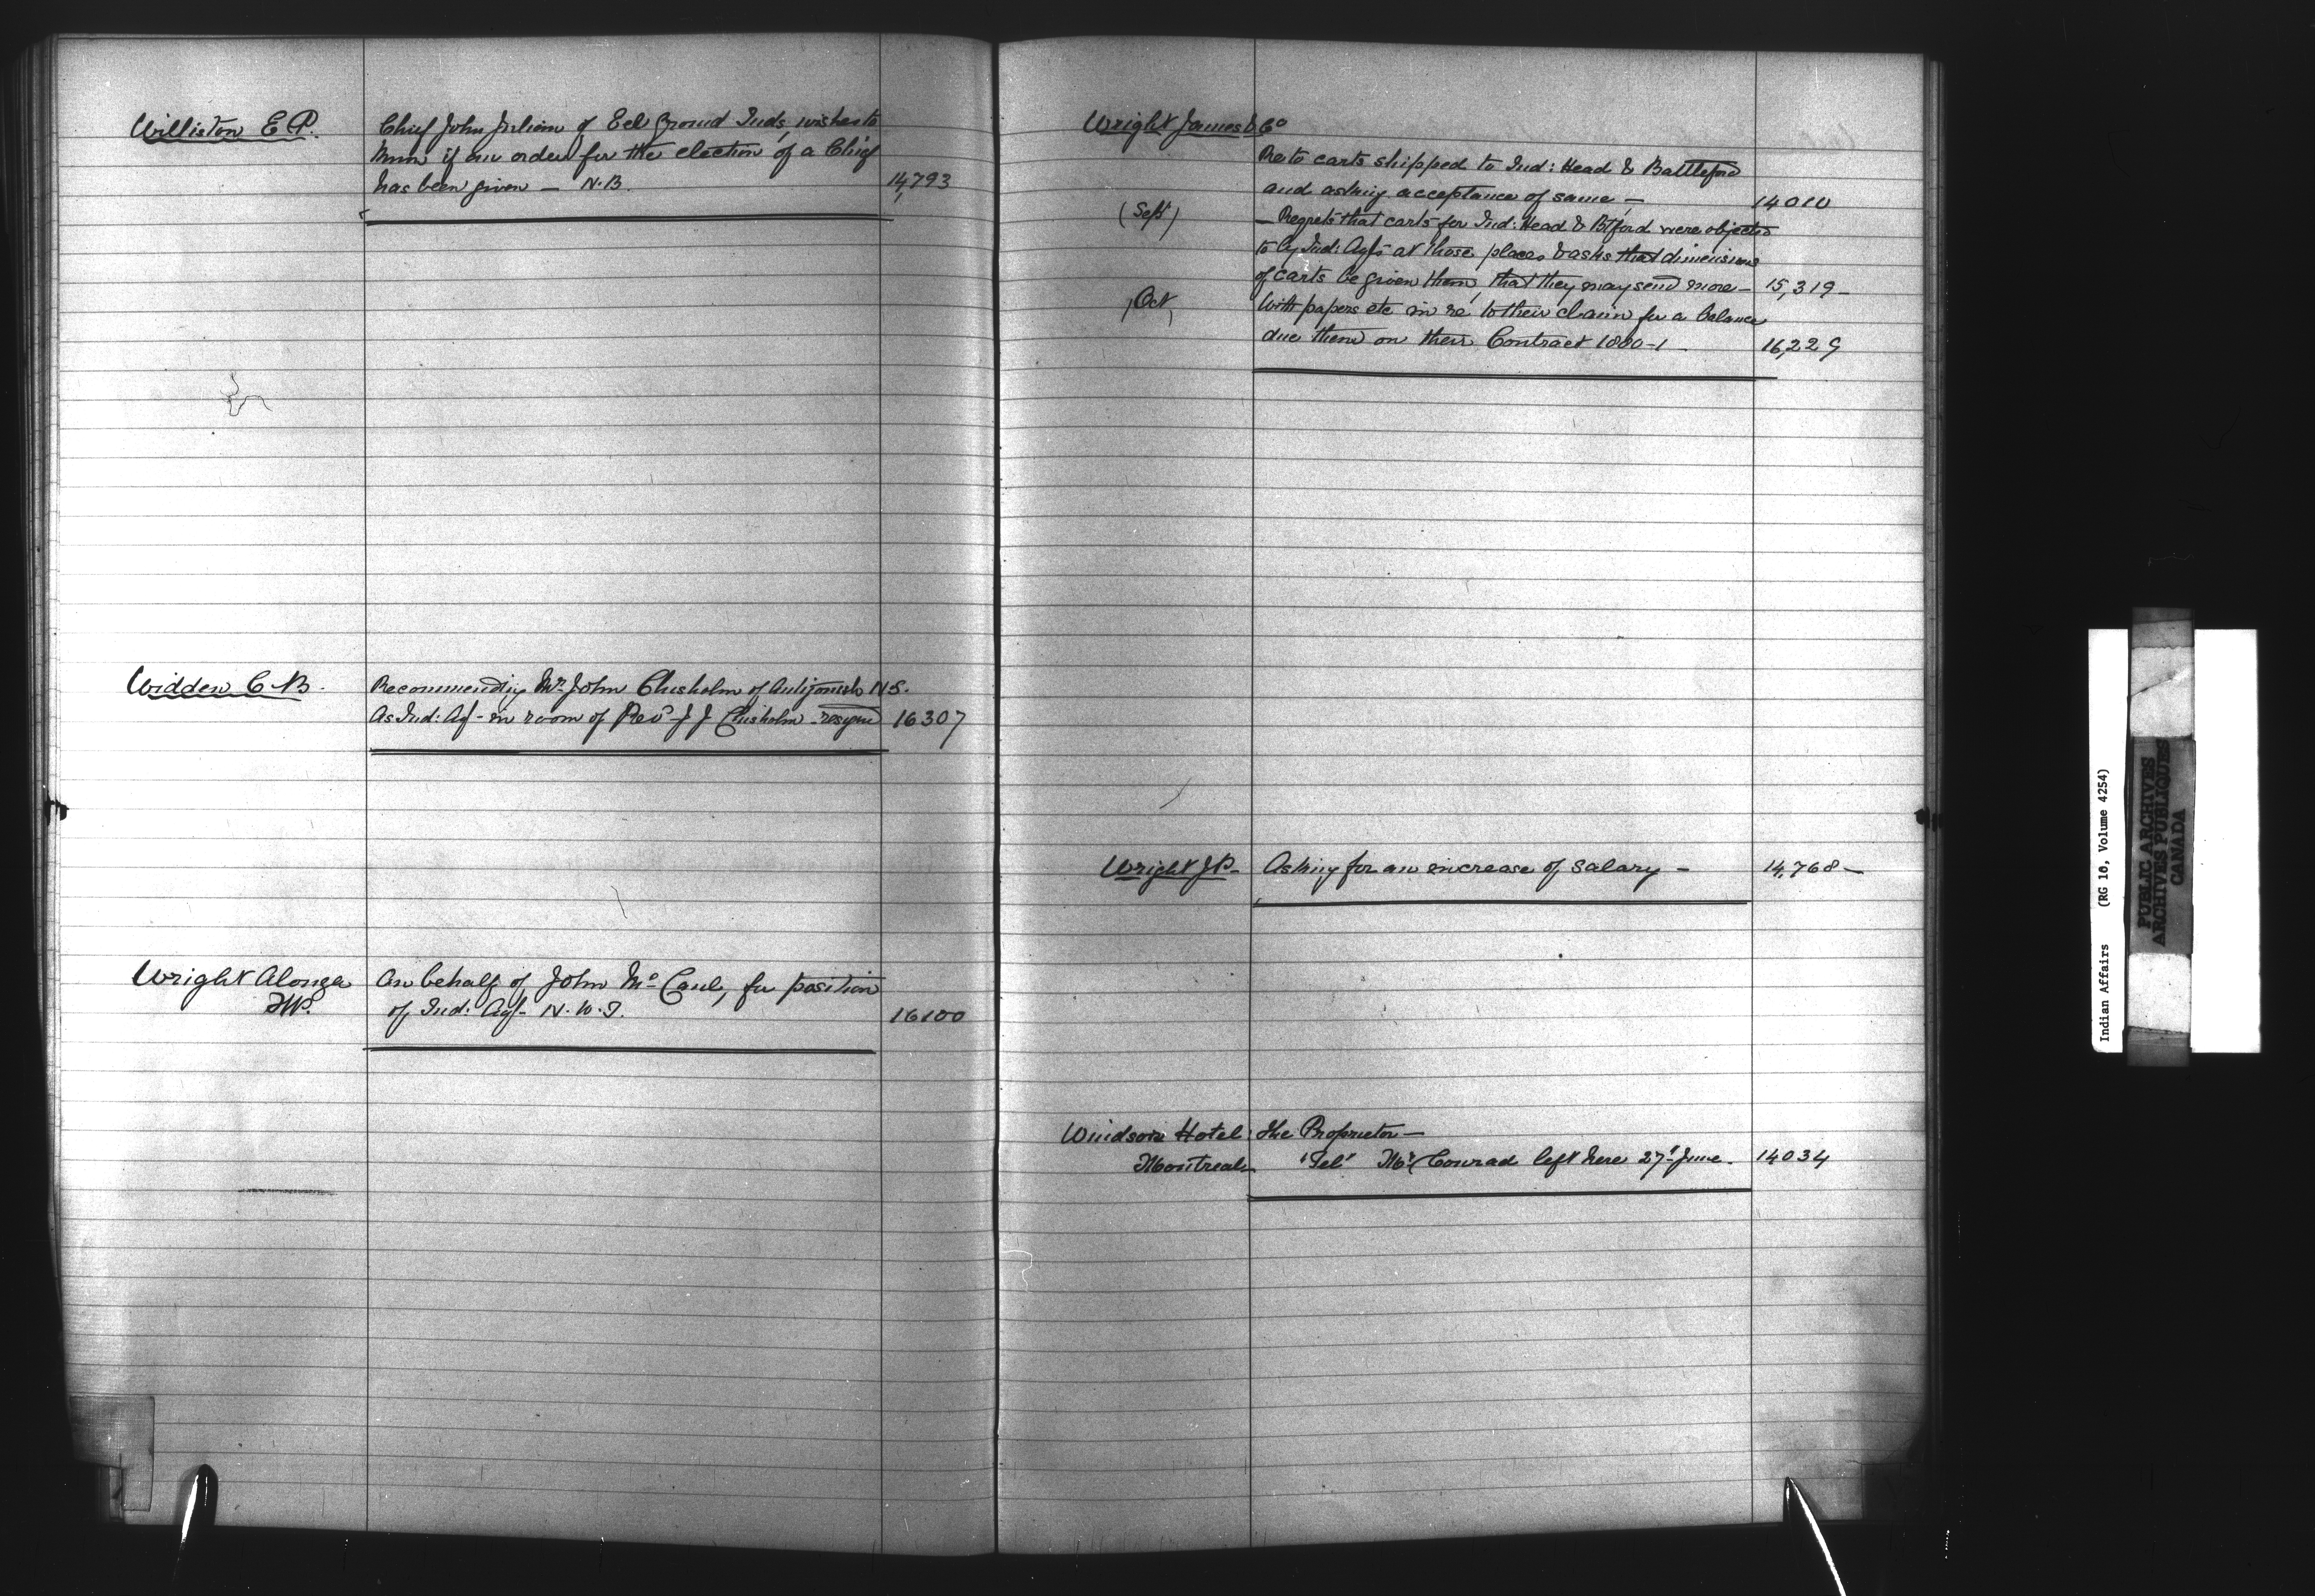 Williston E. P.
Chief John Julian of Eel Ground Inds, wishes to
know if an order for the election of a Chief
has been given — N.B.
14,793
Widden C. B.
Recommending Mr. John Chisholm of Antigonish N.S.
As Ind: Agt - in room of Revd J J Chisholm - resigned
16307
Wright Alonzo
M.P.
On behalf of John McCaul, for position
of Ind: Agt - N. W. T.
16100
Wright James & Co
Re to carts shipped to Ind: Head & Battleford
and asking acceptance of same —
14010
(Sept)
— Regrets that carts for Ind: Head & Btford were objected
to by Ind: Agts at those places & asks that dimensions
of carts be given them, that they may send more —
15,319 —
(Oct)
With papers etc in re to their claim for a balance
due them on their Contract 1880-1 —
16,229
Wright J.P. —
Asking for an increase of salary —
14,768 —
Windsor Hotel
Montreal
The Proprietor —
"Tel" Mr Conrad left here 27th June.
14034
Indian Affairs (RG 10, Volume 4254)
PUBLIC ARCHIVES
ARCHIVES PUBLIQUES
CANADA